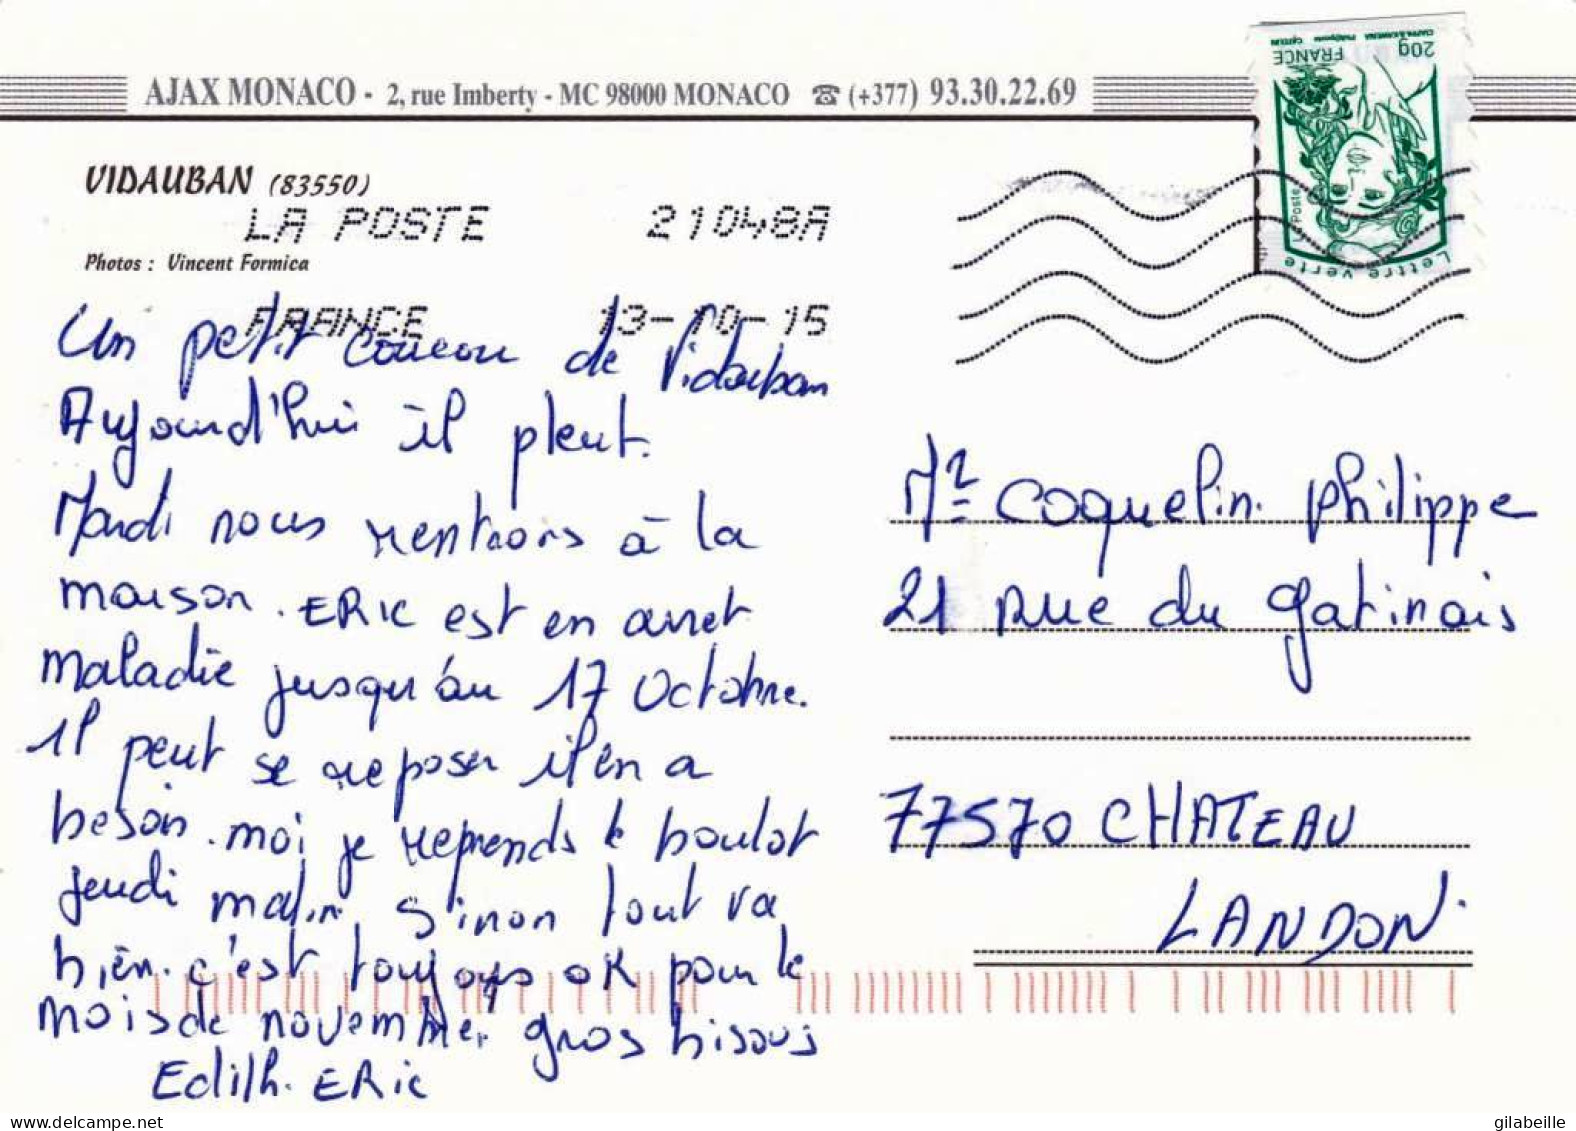 AJAX MONACO - 2, rue Imberty - MC 98000 MONACO ☎ (+377) 93.30.22.69
20g
FRANCE
La Poste
Lettre verte
VIDAUBAN (83550)
LA POSTE 21048A
Photos : Vincent Formica
FRANCE 13-10-15
Un petit coucou de Vidauban
Aujourd'hui il pleut.
Mardi nous rentrons à la
maison. ERIC est en arret
maladie jusqu'au 17 Octobre.
Il peut se reposer il en a
besoin. moi je reprends le boulot
jeudi matin. Sinon tout va
bien. c'est toujours OK pour le
mois de novembre. gros bisous
Edith. ERic
Mr Coquelin. philippe
21 rue du gatinais
77570 CHATEAU
LANDON.
delcampe.net
gilabeille